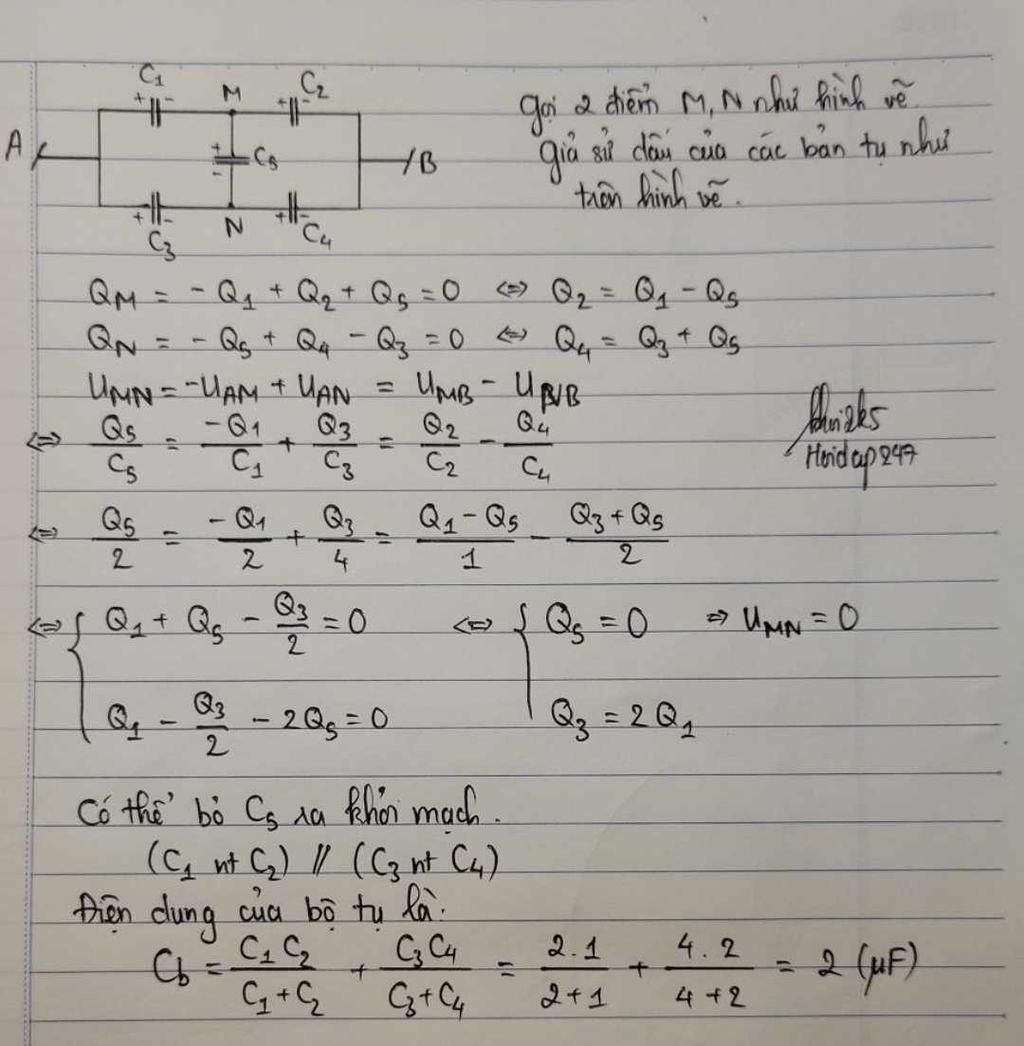 C₁ M C₂
A + - + - B
+ - C₅
+ - + -
C₃ N C₄
Gọi 2 điểm M, N như hình vẽ.
Giả sử dấu của các bản tụ như
trên hình vẽ.
Q_M = - Q₁ + Q₂ + Q₅ = 0 <=> Q₂ = Q₁ - Q₅
Q_N = - Q₅ + Q₄ - Q₃ = 0 <=> Q₄ = Q₃ + Q₅
U_MN = -U_AM + U_AN = U_MB - U_NB
<=> Q₅/C₅ = -Q₁/C₁ + Q₃/C₃ = Q₂/C₂ - Q₄/C₄
Hoidap247
<=> Q₅/2 = -Q₁/2 + Q₃/4 = (Q₁ - Q₅)/1 - (Q₃ + Q₅)/2
<=> { Q₁ + Q₅ - Q₃/2 = 0 <=> { Q₅ = 0 => U_MN = 0
Q₁ - Q₃/2 - 2Q₅ = 0 Q₃ = 2Q₁
Có thể bỏ C₅ ra khỏi mạch.
(C₁ nt C₂) // (C₃ nt C₄)
Điện dung của bộ tụ là:
C_b = C₁C₂/(C₁+C₂) + C₃C₄/(C₃+C₄) = 2.1/(2+1) + 4.2/(4+2) = 2 (μF)